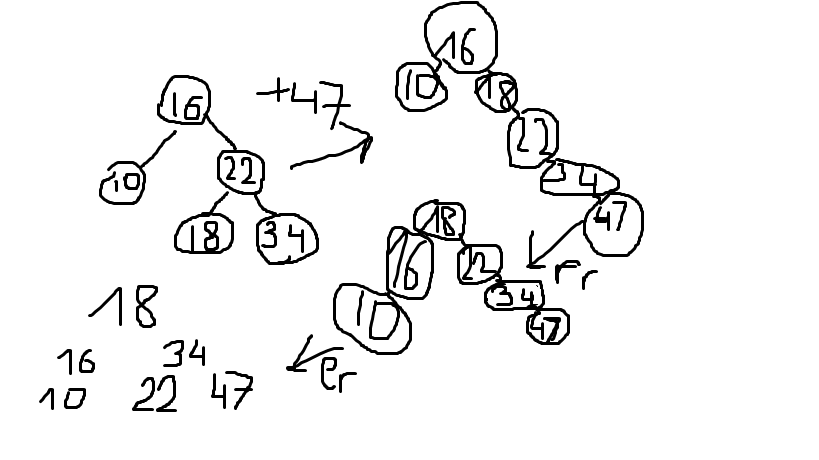 16
10 22
18 34
+47
16
10 18
22
34
47
rr
18
16 22
10 34
47
lr
18
16 34
10 22 47